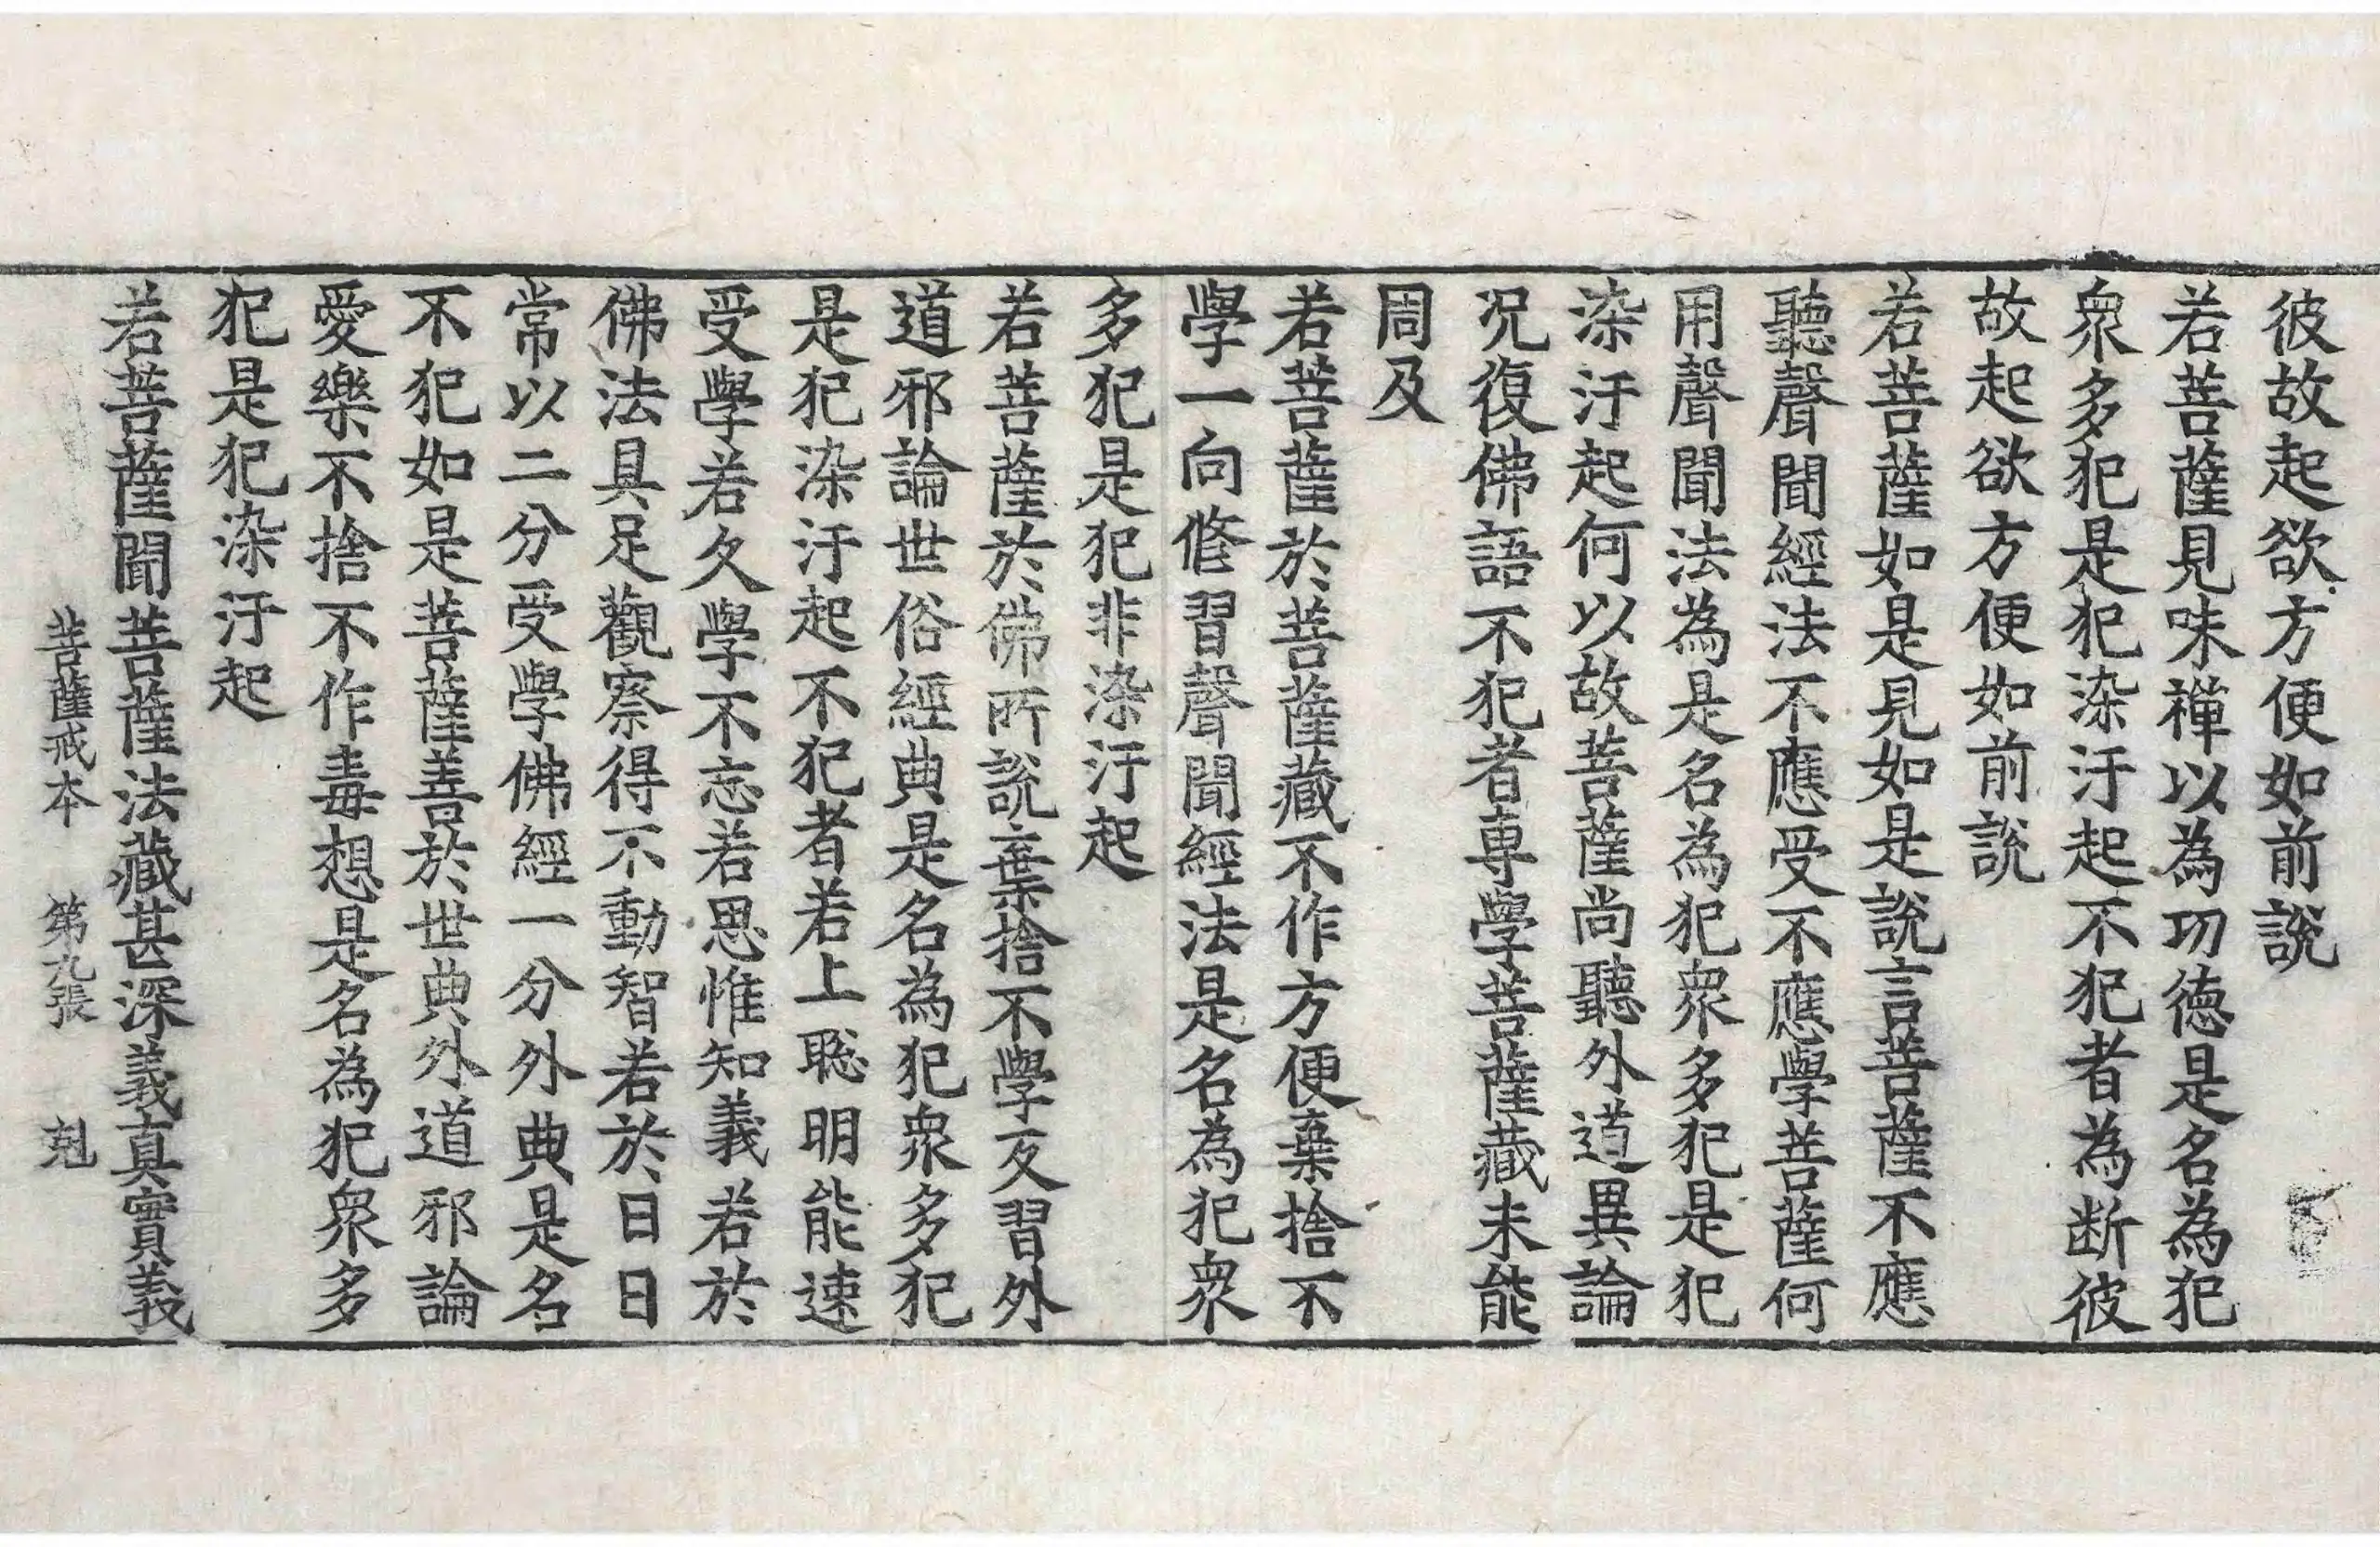 彼故起欲方便如前說
若菩薩見味禪以為功德是名為犯
衆多犯是犯染汙起不犯者為断彼
故起欲方便如前說
若菩薩如是見如是說言菩薩不應
聽聲聞經法不應受不應學菩薩何
用聲聞法為是名為犯衆多犯是犯
染汙起何以故菩薩尚聽外道異論
况復佛語不犯者専學菩薩藏未能
周及
若菩薩於菩薩藏不作方便棄捨不
學一向脩習聲聞經法是名為犯衆
多犯是犯非染汙起
若菩薩於佛所說棄捨不學反習外
道邪論世俗經典是名為犯衆多犯
是犯染汙起不犯者若上聡明能速
受學若久學不忘若思惟知義若於
佛法具足觀察得不動智若於日日
常以二分受學佛經一分外典是名
不犯如是菩薩善於世典外道邪論
愛樂不捨不作毒想是名為犯衆多
犯是犯染汙起
若菩薩聞菩薩法藏甚深義真實義
菩薩戒本 第九張 剋